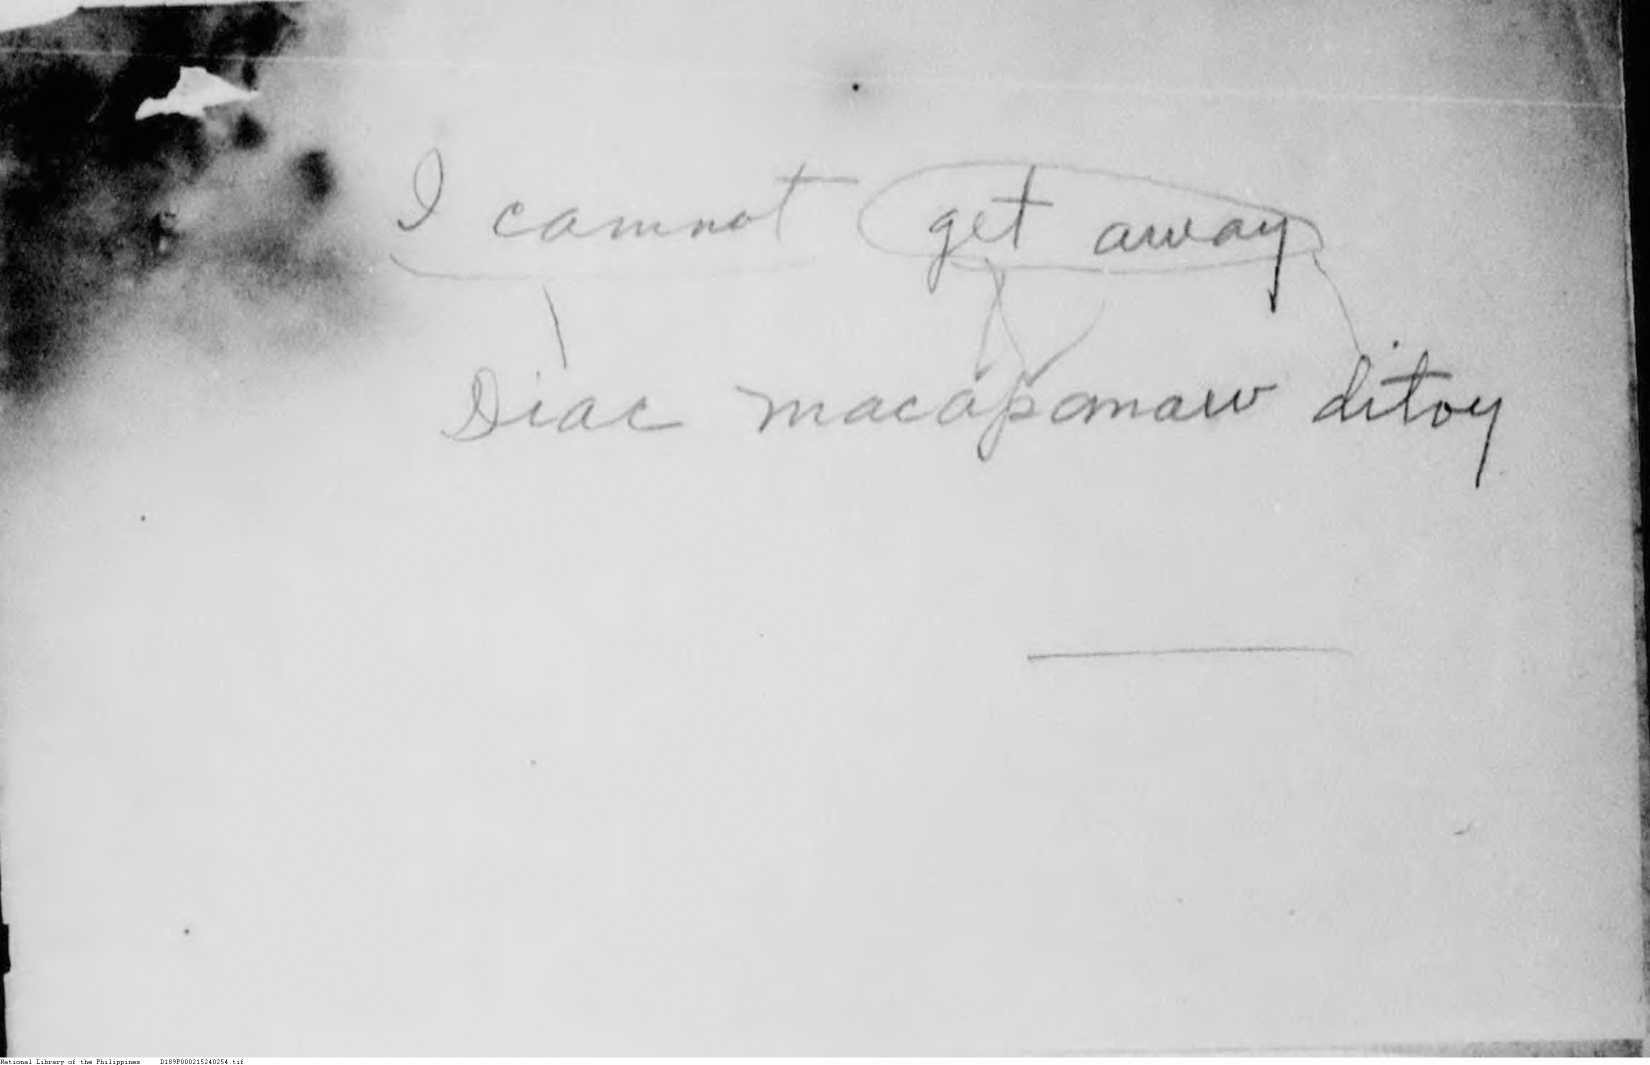 I cannot get away
Diac macapanaw ditoy
National Library of the Philippines D189P000215240254.tif